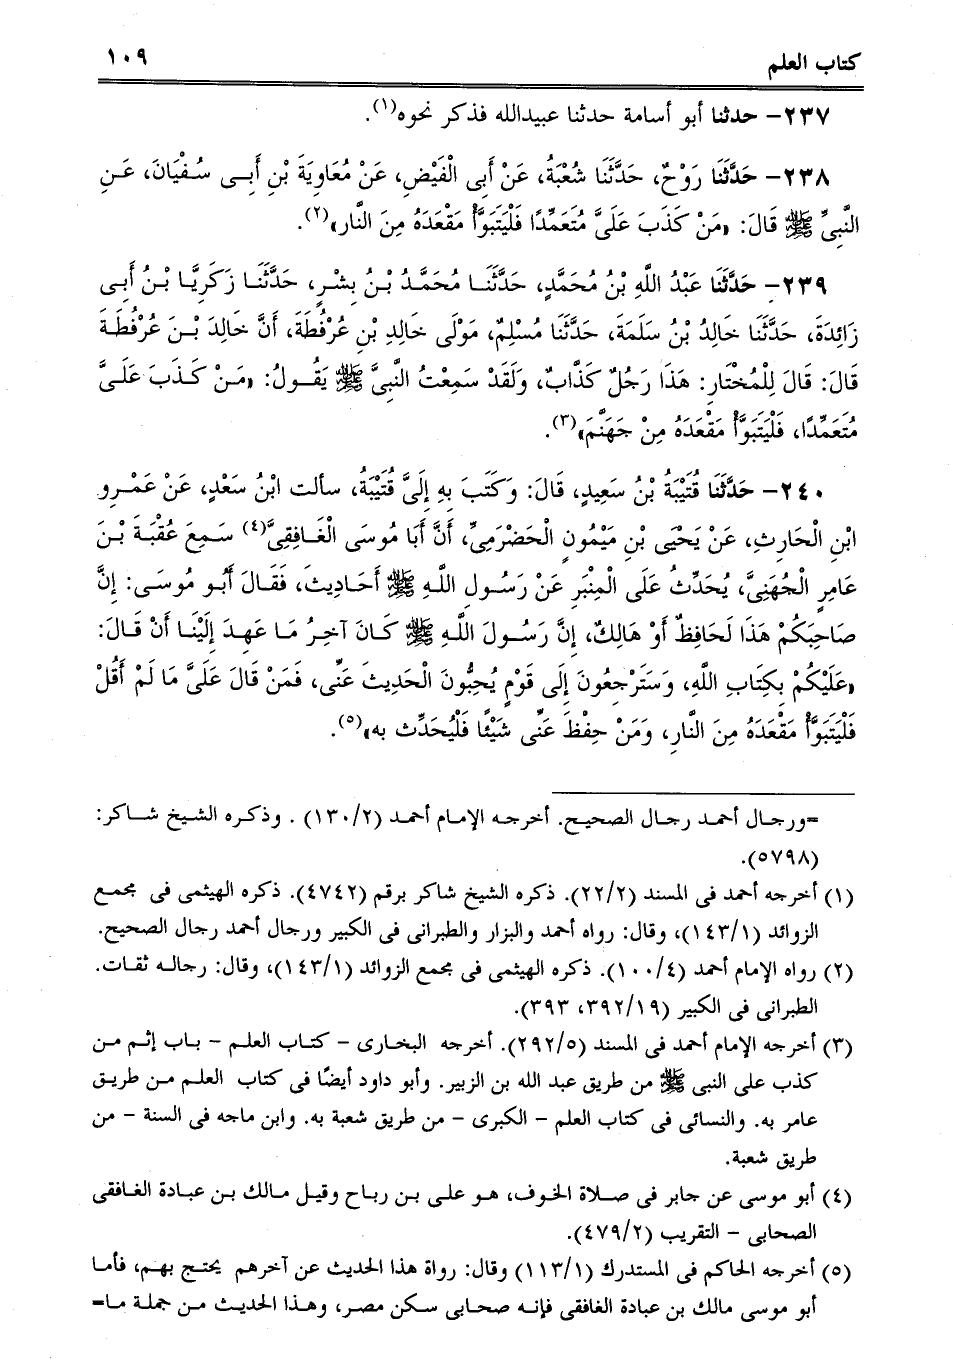 كتاب العلم ١٠٩
٢٣٧- حدثنا أبو أسامة حدثنا عبيدالله فذكر نحوه(١).
٢٣٨- حَدَّثَنَا رَوْحٌ، حَدَّثَنَا شُعْبَةُ، عَنْ أَبِى الْفَيْضِ، عَنْ مُعَاوِيَةَ بْنِ أَبِــى سُـفْيَانَ، عَـنِ
النَّبِىِّ ﷺ قَالَ: «مَنْ كَذَبَ عَلَىَّ مُتَعَمِّدًا فَلْيَتَبَوَّأْ مَقْعَدَهُ مِنَ النَّارِ»(٢).
٢٣٩- حَدَّثَنَا عَبْدُ اللَّهِ بْنُ مُحَمَّدٍ، حَدَّثَنَـا مُحَمَّـدُ بْـنُ بِشْـرٍ، حَدَّثَنَـا زَكَرِيَّـا بْـنُ أَبِى
زَائِدَةَ، حَدَّثَنَا خَالِدُ بْنُ سَلَمَةَ، حَدَّثَنَا مُسْلِمٌ، مَوْلَى خَالِدِ بْنِ عُرْفُطَةَ، أَنَّ خَالِدَ بْـنَ عُرْفُطَـةَ
قَالَ: قَالَ لِلْمُخْتَارِ: هَذَا رَجُلٌ كَذَّابٌ، وَلَقَدْ سَمِعْتُ النَّبِىَّ ﷺ يَقُـولُ: «مَـنْ كَـذَبَ عَلَـىَّ
مُتَعَمِّدًا، فَلْيَتَبَوَّأْ مَقْعَدَهُ مِنْ جَهَنَّمَ»(٣).
٢٤٠- حَدَّثَنَا قُتَيْبَةُ بْنُ سَعِيدٍ، قَالَ: وَكَتَبَ بِهِ إِلَىَّ قُتَيْبَةُ، سألت ابْنُ سَعْدٍ، عَنْ عَمْـرِو
ابْنِ الْحَارِثِ، عَنْ يَحْيَى بْنِ مَيْمُونٍ الْحَضْرَمِىِّ، أَنَّ أَبَا مُوسَى الْغَـافِقِىَّ(٤) سَـمِعَ عُقْبَةَ بْـنَ
عَامِرٍ الْجُهَنِىَّ، يُحَدِّثُ عَلَى الْمِنْبَرِ عَنْ رَسُولِ اللَّـهِ ﷺ أَحَادِيثَ، فَقَـالَ أَبُـو مُوسَـى: إِنَّ
صَاحِبَكُمْ هَذَا لَحَافِظٌ أَوْ هَالِكٌ، إِنَّ رَسُـولَ اللَّـهِ ﷺ كَـانَ آخِـرُ مَـا عَهِـدَ إِلَيْنَـا أَنْ قَـالَ:
«عَلَيْكُمْ بِكِتَابِ اللَّهِ، وَسَتَرْجِعُونَ إِلَى قَوْمٍ يُحِبُّونَ الْحَدِيثَ عَنِّى، فَمَنْ قَالَ عَلَىَّ مَا لَمْ أَقُلْ
فَلْيَتَبَوَّأْ مَقْعَدَهُ مِنَ النَّارِ، وَمَنْ حِفْظَ عَنِّى شَيْئًا فَلْيُحَدِّث به»(٥).
=ورجـال أحمـد رجـال الصحيـح. أخرجـه الإمـام أحمـد (١٣٠/٢). وذكـره الشـيخ شـاكر:
(٥٧٩٨).
(١) أخرجه أحمد فى المسند (٢٢/٢). ذكره الشيخ شاكر برقم (٤٧٤٢). ذكره الهيثمى فى مجمع
الزوائد (١٤٣/١)، وقال: رواه أحمد والبزار والطبرانى فى الكبير ورجال أحمد رجال الصحيح.
(٢) رواه الإمام أحمد (١٠٠/٤). ذكره الهيثمى فى مجمع الزوائد (١٤٣/١)، وقال: رجالـه ثقـات.
الطبرانى فى الكبير (٣٩٢/١٩، ٣٩٣).
(٣) أخرجه الإمام أحمد فى المسند (٢٩٢/٥). أخرجه البخارى - كتـاب العلـم - بـاب إثـم مـن
كذب على النبى ﷺ من طريق عبد الله بن الزبير. وأبو داود أيضًا فى كتاب العلـم مـن طريـق
عامر به. والنسائى فى كتاب العلم - الكبرى - من طريق شعبة به. وابن ماجه فى السنة - من
طريق شعبة.
(٤) أبو موسى عن جابر فى صـلاة الخوف، هـو علـى بـن ربـاح وقيـل مـالك بـن عبادة الغـافقى
الصحابى - التقريب (٤٧٩/٢).
(٥) أخرجه الحاكم فى المستدرك (١١٣/١) وقال: رواة هذا الحديث عن آخرهم يحتـج بهـم، فأمـا
أبو موسى مالك بن عبادة الغافقى فإنـه صحـابى سـكن مصـر، وهـذا الحديـث مـن جملـة مـا=